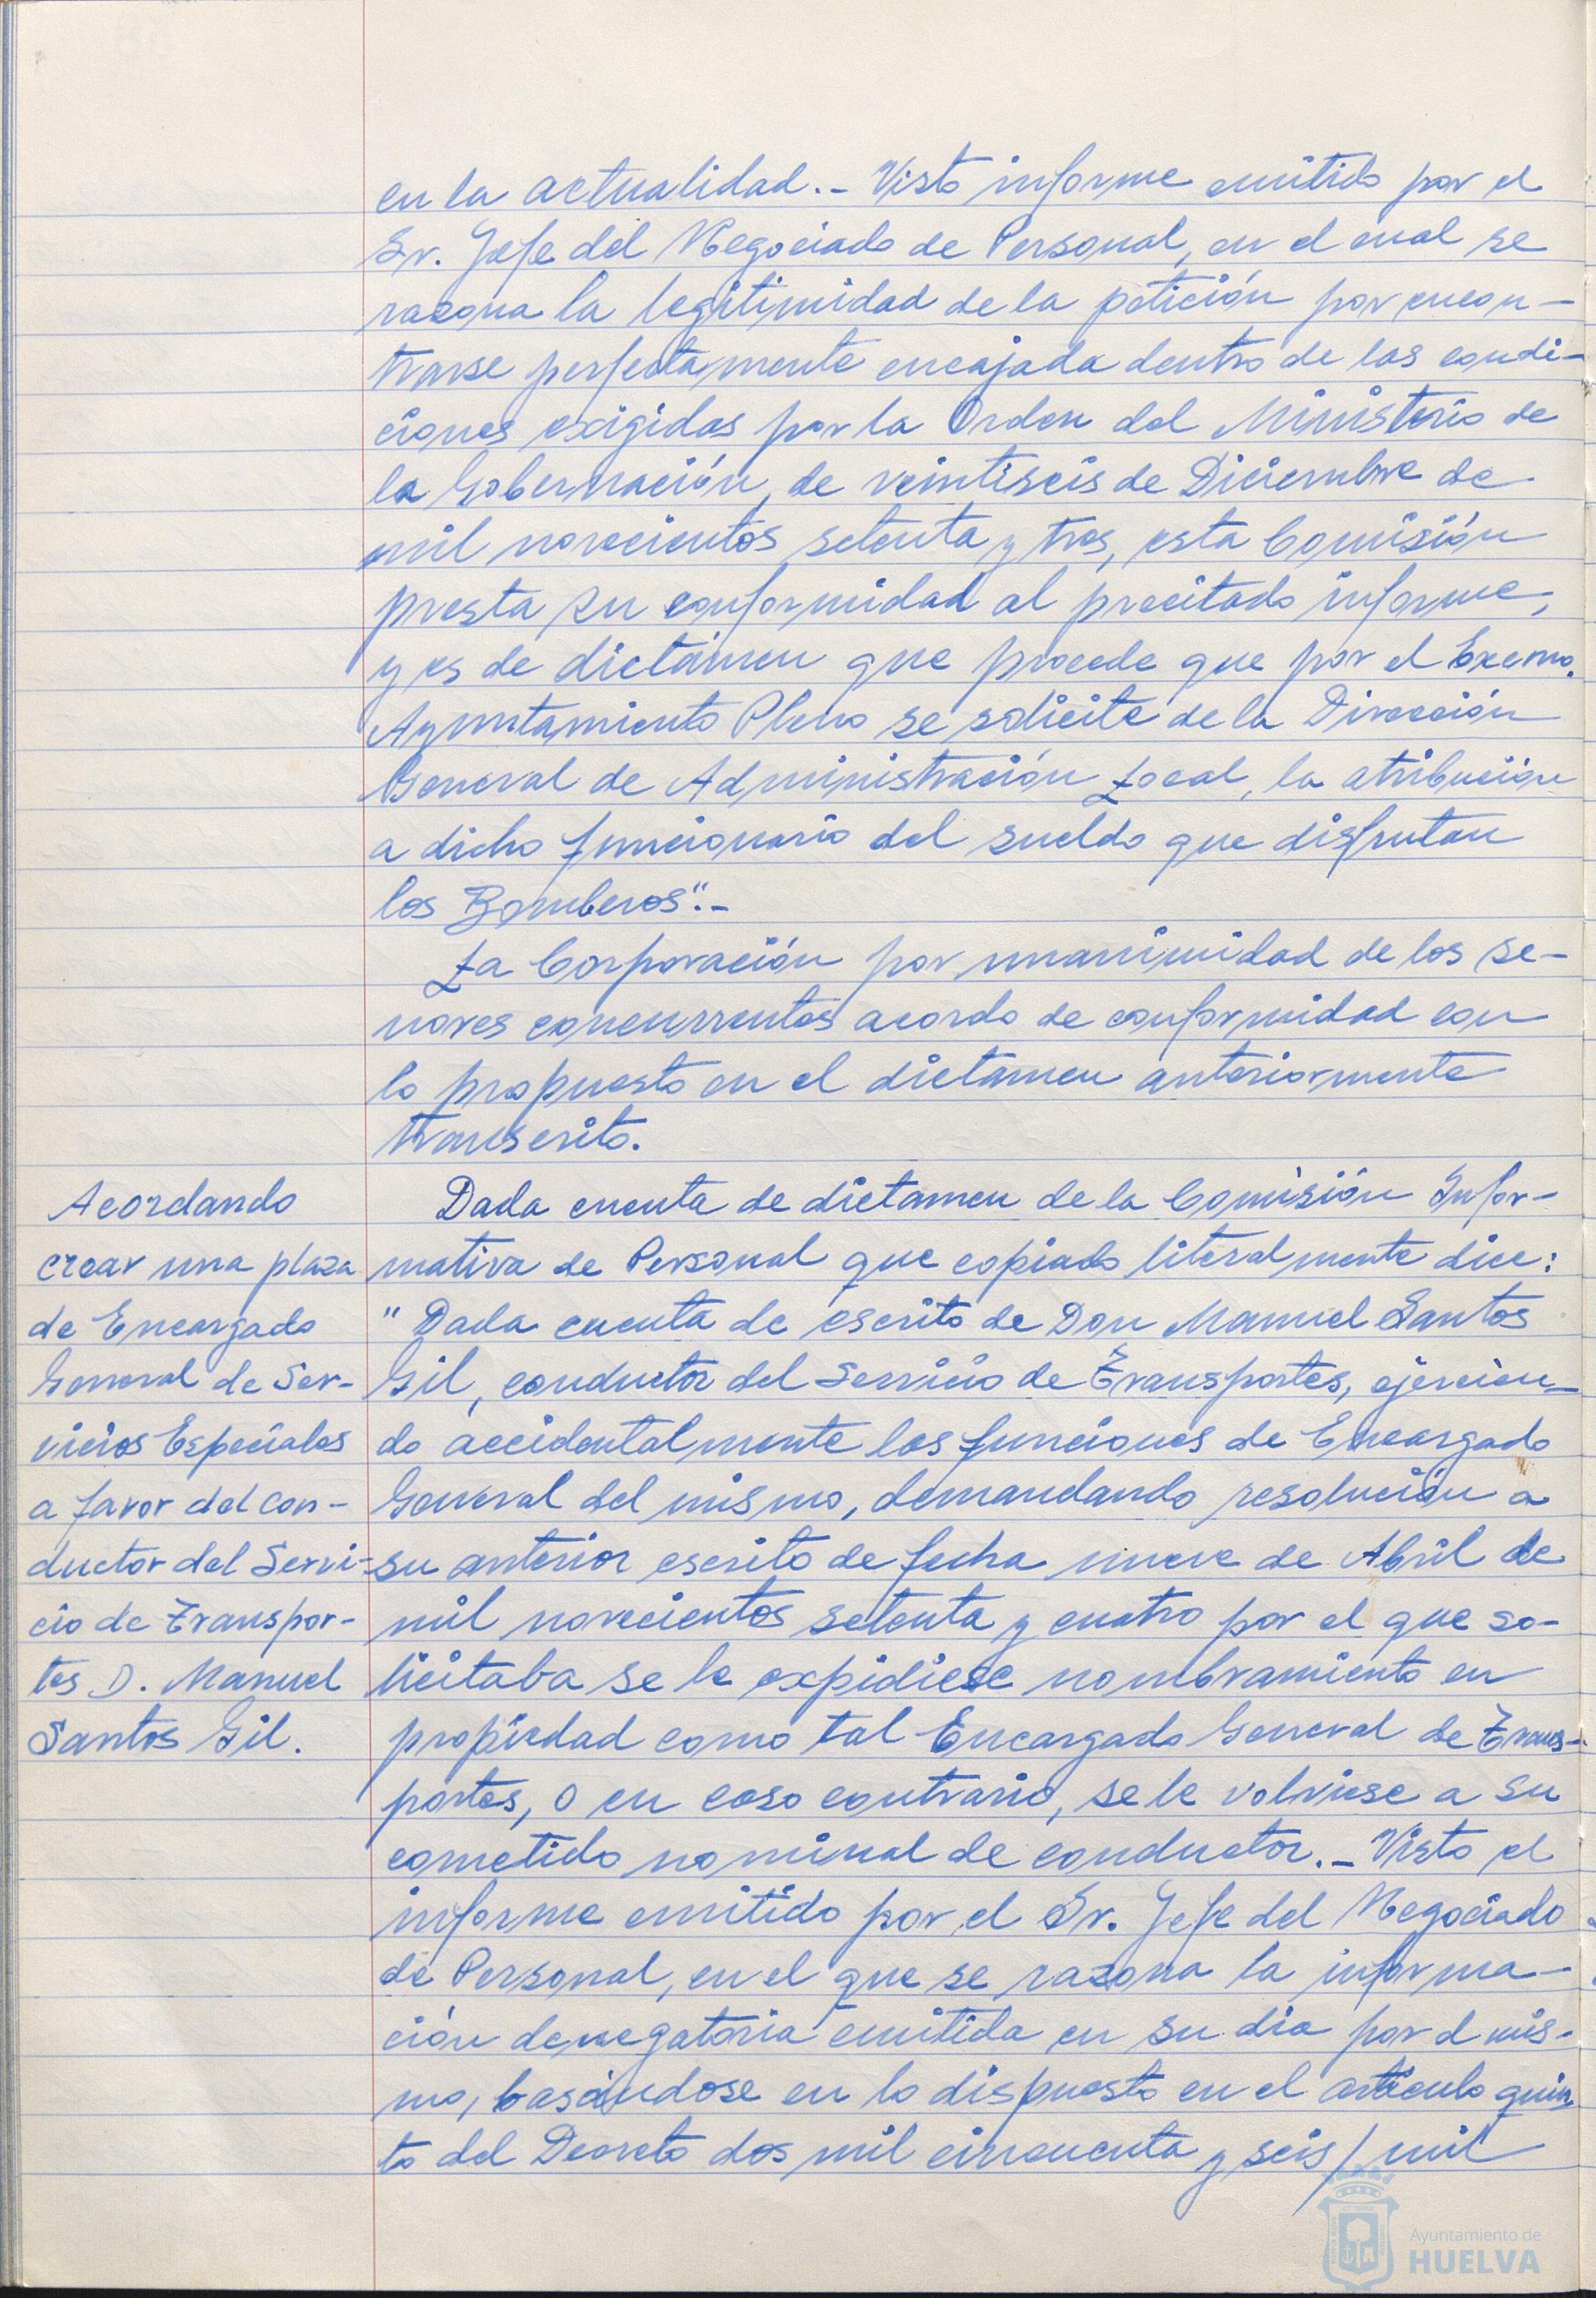 en la actualidad.- Visto informe emitido por el
Sr. Jefe del Negociado de Personal, en el cual se
razona la legitimidad de la petición por encon-
trarse perfectamente encajada dentro de las condi-
ciones exigidas por la Orden del Ministerio de
la Gobernación, de veintiseis de Diciembre de
mil novecientos setenta y tres, esta Comisión
presta su conformidad al precitado informe,
y es de dictámen que procede que por el Excmo.
Ayuntamiento Pleno se solicite de la Dirección
General de Administración Local, la atribución
a dicho funcionario del sueldo que disfrutan
los Bomberos".-
La Corporación por unanimidad de los se-
nores concurrentes acordo de conformidad con
lo propuesto en el dictamen anteriormente
transcrito.
Acordando
crear una plaza
de Encargado
General de Ser-
vicios Especiales
a favor del con-
ductor del Servi-
cio de Transpor-
tes D. Manuel
Santos Gil.
Dada cuenta de dictamen de la Comisión Infor-
mativa de Personal que copiado literalmente dice:
"Dada cuenta de escrito de Don Manuel Santos
Gil, conductor del Servicio de Transportes, ejercien-
do accidentalmente las funciones de Encargado
General del mismo, demandando resolución a
su anterior escrito de fecha nueve de Abril de
mil novecientos setenta y cuatro por el que so-
licitaba se le expidiese nombramiento en
propiedad como tal Encargado General de Trans-
portes, o en caso contrario, se le volviese a su
cometido nominal de conductor.- Visto el
informe emitido por el Sr. Jefe del Negociado
de Personal, en el que se razona la informa-
ción denegatoria emitida en su dia por el mis-
mo, basándose en lo dispuesto en el artículo quin-
to del Decreto dos mil cincuenta y seis/mil
Ayuntamiento de
HUELVA